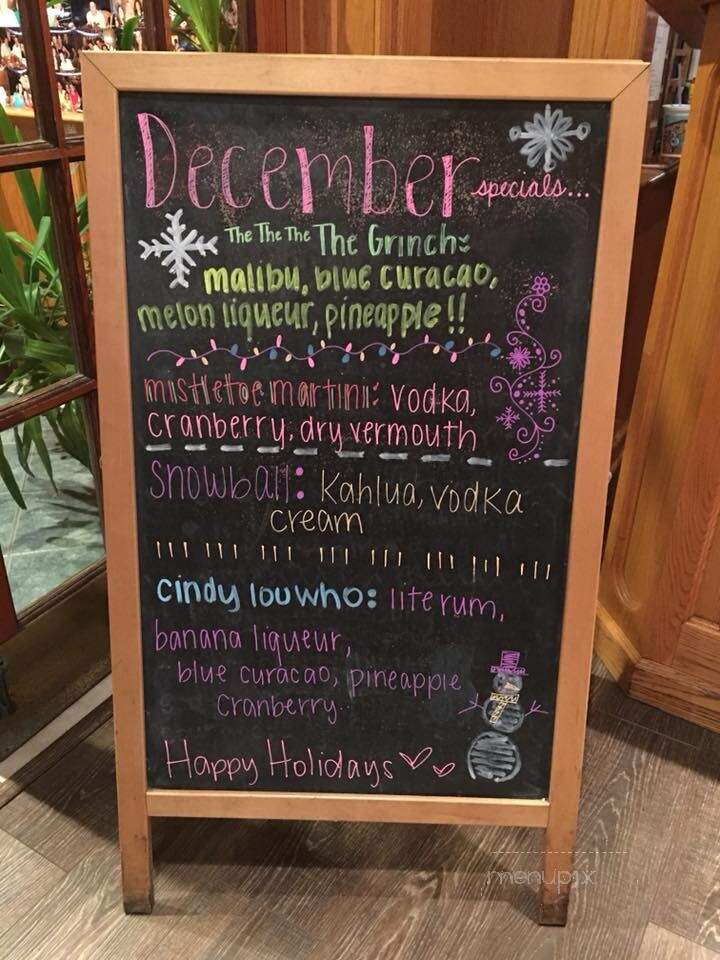 December
specials...
The The The The Grinch:
malibu, blue curacao,
melon liqueur, pineapple!!
mistletoe martini: vodka,
cranberry, dry vermouth
snowball: Kahlua, vodka
cream
cindy lou who: lite rum,
banana liqueur,
blue curacao, pineapple
cranberry
Happy Holidays
menupix